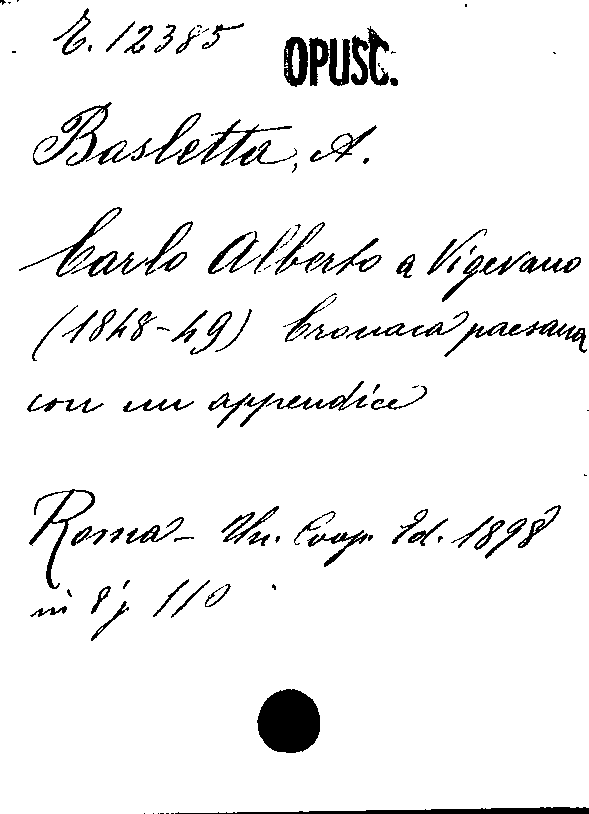 E. 12385 OPUSC.
Basletta, A.
Carlo Alberto a Vigevano
(1848-49) Cronaca paesana
con un appendice
Roma - Un. Coop. Ed. 1898
in 8 p. 110